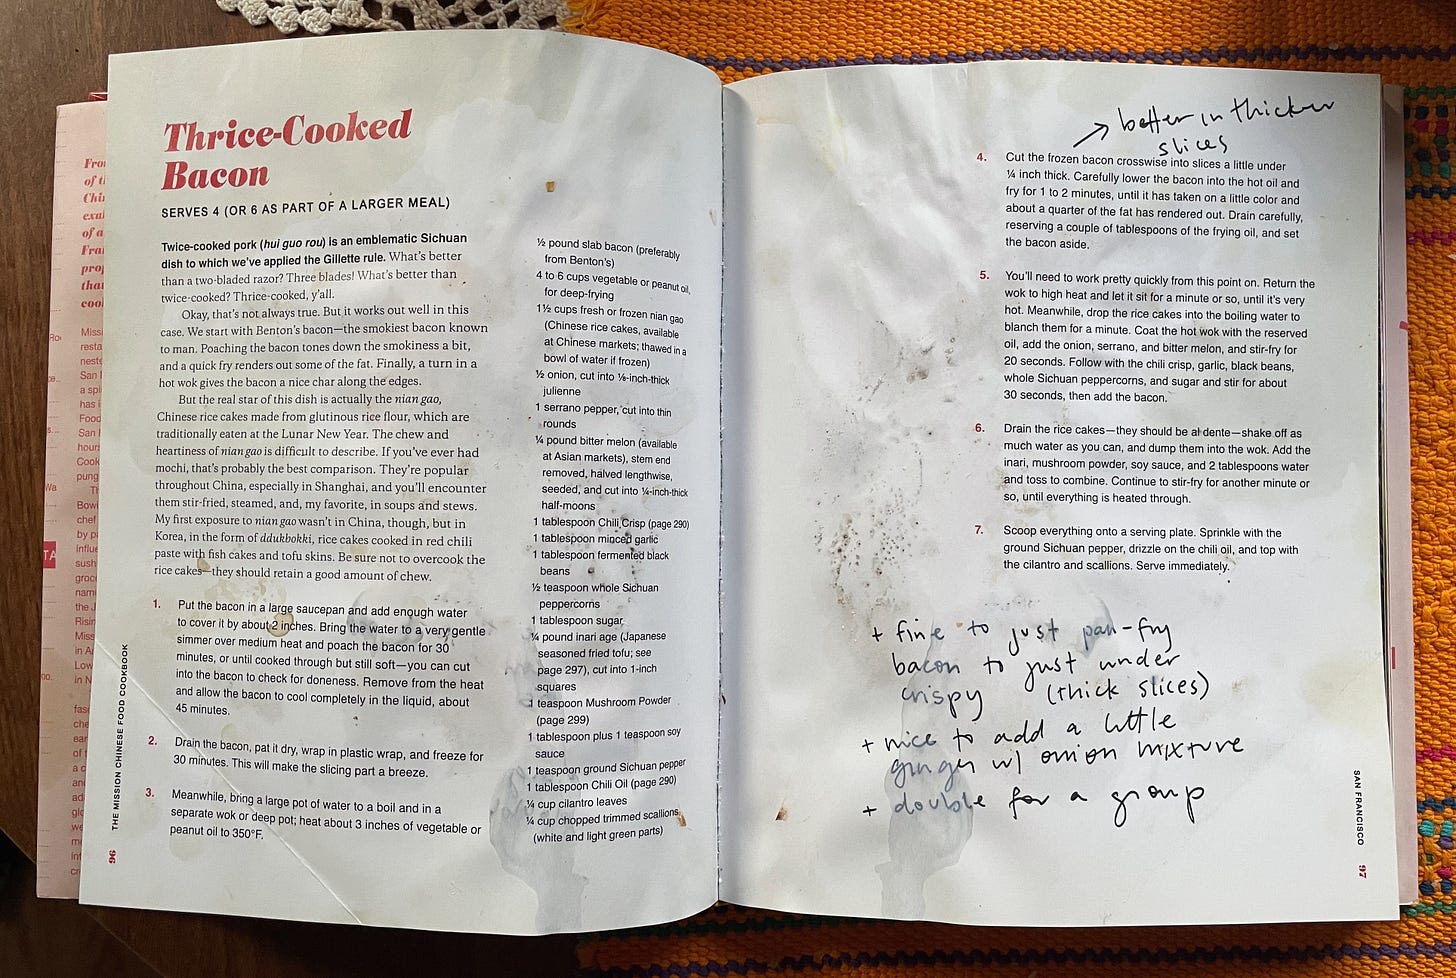 Thrice-Cooked
Bacon
SERVES 4 (OR 6 AS PART OF A LARGER MEAL)
Twice-cooked pork (hui guo rou) is an emblematic Sichuan
dish to which we've applied the Gillette rule. What's better
than a two-bladed razor? Three blades! What's better than
twice-cooked? Thrice-cooked, y'all.
Okay, that's not always true. But it works out well in this
case. We start with Benton's bacon—the smokiest bacon known
to man. Poaching the bacon tones down the smokiness a bit,
and a quick fry renders out some of the fat. Finally, a turn in a
hot wok gives the bacon a nice char along the edges.
But the real star of this dish is actually the nian gao,
Chinese rice cakes made from glutinous rice flour, which are
traditionally eaten at the Lunar New Year. The chew and
heartiness of nian gao is difficult to describe. If you've ever had
mochi, that's probably the best comparison. They're popular
throughout China, especially in Shanghai, and you'll encounter
them stir-fried, steamed, and, my favorite, in soups and stews.
My first exposure to nian gao wasn't in China, though, but in
Korea, in the form of ddukbokki, rice cakes cooked in red chili
paste with fish cakes and tofu skins. Be sure not to overcook the
rice cakes—they should retain a good amount of chew.
1. Put the bacon in a large saucepan and add enough water
to cover it by about 2 inches. Bring the water to a very gentle
simmer over medium heat and poach the bacon for 30
minutes, or until cooked through but still soft—you can cut
into the bacon to check for doneness. Remove from the heat
and allow the bacon to cool completely in the liquid, about
45 minutes.
2. Drain the bacon, pat it dry, wrap in plastic wrap, and freeze for
30 minutes. This will make the slicing part a breeze.
3. Meanwhile, bring a large pot of water to a boil and in a
separate wok or deep pot; heat about 3 inches of vegetable or
peanut oil to 350°F.
½ pound slab bacon (preferably
from Benton's)
4 to 6 cups vegetable or peanut oil,
for deep-frying
1½ cups fresh or frozen nian gao
(Chinese rice cakes, available
at Chinese markets; thawed in a
bowl of water if frozen)
½ onion, cut into ⅛-inch-thick
julienne
1 serrano pepper, cut into thin
rounds
¼ pound bitter melon (available
at Asian markets), stem end
removed, halved lengthwise,
seeded, and cut into ¼-inch-thick
half-moons
1 tablespoon Chili Crisp (page 290)
1 tablespoon minced garlic
1 tablespoon fermented black
beans
½ teaspoon whole Sichuan
peppercorns
1 tablespoon sugar
¼ pound inari age (Japanese
seasoned fried tofu; see
page 297), cut into 1-inch
squares
1 teaspoon Mushroom Powder
(page 299)
1 tablespoon plus 1 teaspoon soy
sauce
1 teaspoon ground Sichuan pepper
1 tablespoon Chili Oil (page 290)
¼ cup cilantro leaves
¼ cup chopped trimmed scallions
(white and light green parts)
THE MISSION CHINESE FOOD COOKBOOK
96
→ better in thicker
slices
4. Cut the frozen bacon crosswise into slices a little under
¼ inch thick. Carefully lower the bacon into the hot oil and
fry for 1 to 2 minutes, until it has taken on a little color and
about a quarter of the fat has rendered out. Drain carefully,
reserving a couple of tablespoons of the frying oil, and set
the bacon aside.
5. You'll need to work pretty quickly from this point on. Return the
wok to high heat and let it sit for a minute or so, until it's very
hot. Meanwhile, drop the rice cakes into the boiling water to
blanch them for a minute. Coat the hot wok with the reserved
oil, add the onion, serrano, and bitter melon, and stir-fry for
20 seconds. Follow with the chili crisp, garlic, black beans,
whole Sichuan peppercorns, and sugar and stir for about
30 seconds, then add the bacon.
6. Drain the rice cakes—they should be al dente—shake off as
much water as you can, and dump them into the wok. Add the
inari, mushroom powder, soy sauce, and 2 tablespoons water
and toss to combine. Continue to stir-fry for another minute or
so, until everything is heated through.
7. Scoop everything onto a serving plate. Sprinkle with the
ground Sichuan pepper, drizzle on the chili oil, and top with
the cilantro and scallions. Serve immediately.
+ fine to just pan-fry
bacon to just under
crispy (thick slices)
+ nice to add a little
ginger w/ onion mixture
+ double for a group
SAN FRANCISCO
97